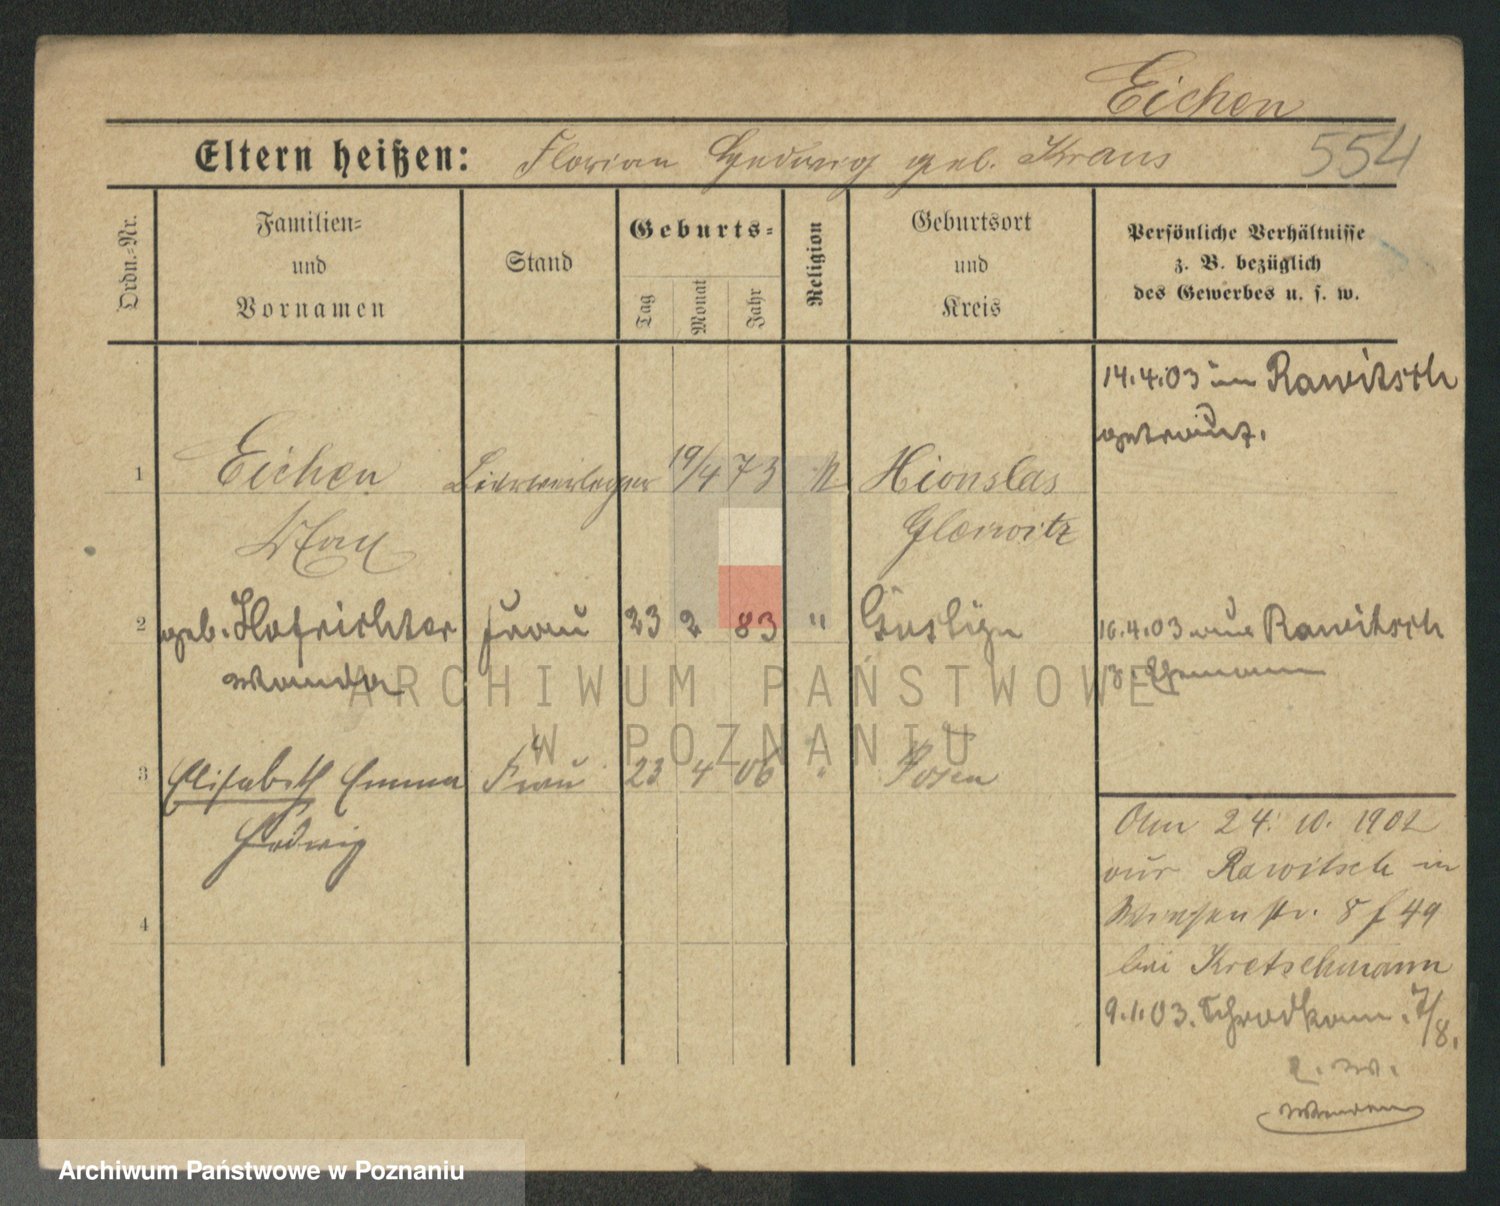 Eichen
Eltern heißen: Florian Hedwig geb. Kraus
554
Ordn.-Nr.
Familien-
und
Vornamen
Stand
Geburts-
Tag
Monat
Jahr
Religion
Geburtsort
und
Kreis
Persönliche Verhältnisse
z. B. bezüglich
des Gewerbes u. s. w.
14.4.03 in Rawitsch
getraut.
1 Eichen Bierverleger 19/4 73
Max Gleiwitz
2 geb. Hofrichter Frau 23 2 83 "
Wanda
16.4.03 aus Rawitsch
z. Ehemann
3 Elisabeth Emma 23 4 06 " Posen
Hedwig
4
24. 10. 1902
aus Rawitsch in
Wiesenstr. 8 f 49
bei Kretschmann
9.1.03. 7/8.
l. W.
Wenden
ARCHIWUM PAŃSTWOWE
W POZNANIU
Archiwum Państwowe w Poznaniu